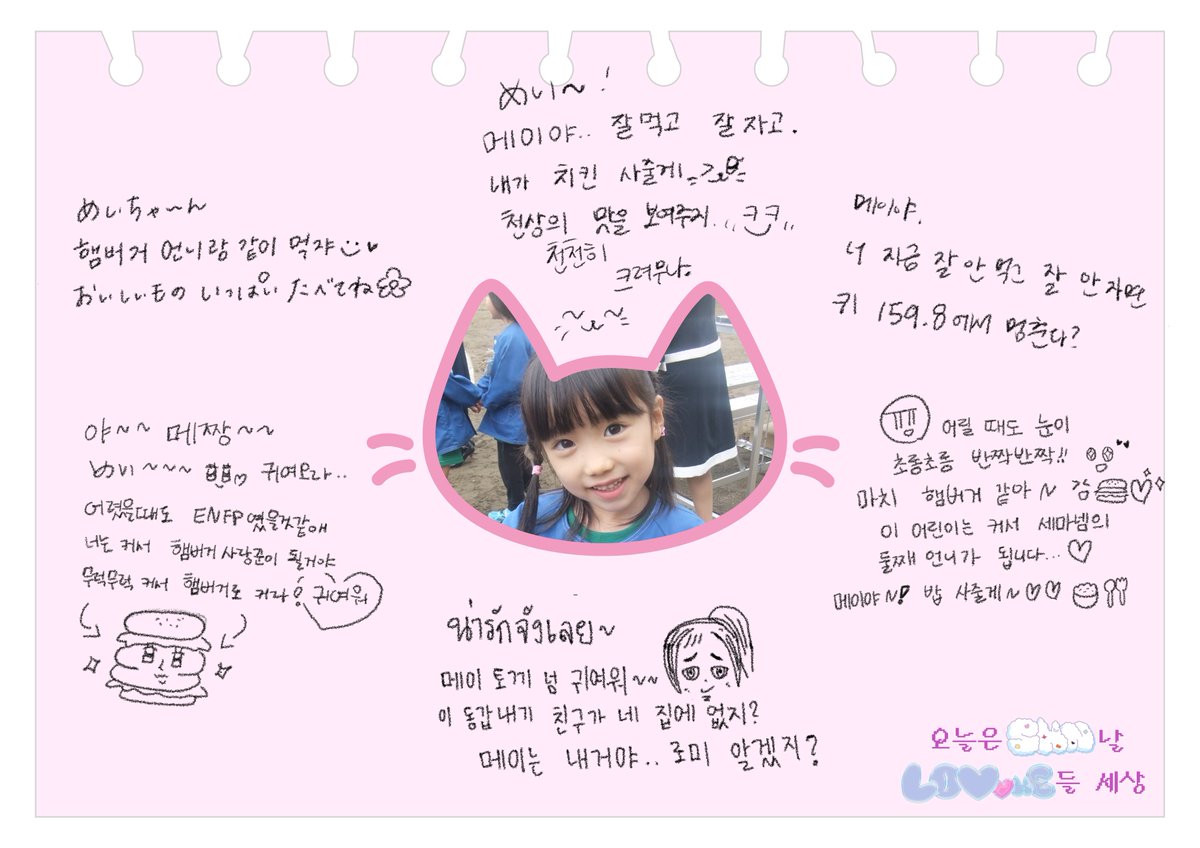 めい~!
메이야.. 잘먹고 잘자고.
내가 치킨 사줄게
천상의 맛을 보여주지... ㅋㅋ
천천히
크려무나
めいちゃ~ん
햄버거 언니랑 같이 먹쟈
おいしいもの いっぱい たべてね
메이야.
너 지금 잘 안 먹고 잘 안자면
키 159.8에서 멈춘다?
야~~ 메짱~~
めい~~~ 귀여오라..
어렸을때도 ENFP였을것같애
너는 커서 햄버거사랑꾼이 될거야
무럭무럭 커서 햄버거로 커라! 귀여워
어릴 때도 눈이
초롱초롱 반짝반짝!!
마치 햄버거 같아~
이 어린이는 커서 세마넴의
둘째 언니가 됩니다...
메이야~! 밥 사줄게~
น่ารักจังเลย~
메이 토끼 넘 귀여워~~
이 동갑내기 친구가 네 집에 없지?
메이는 내거야.. 로미 알겠지?
오늘은 날
LOVME들 세상